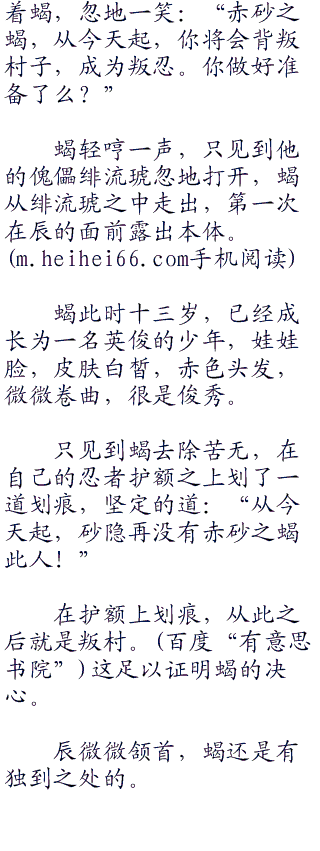 着蝎，忽地一笑：“赤砂之
蝎，从今天起，你将会背叛
村子，成为叛忍。你做好准
备了么？”
蝎轻哼一声，只见到他
的傀儡绯流琥忽地打开，蝎
从绯流琥之中走出，第一次
在辰的面前露出本体。
(m.heihei66.com手机阅读)
蝎此时十三岁，已经成
长为一名英俊的少年，娃娃
脸，皮肤白皙，赤色头发，
微微卷曲，很是俊秀。
只见到蝎去除苦无，在
自己的忍者护额之上划了一
道划痕，坚定的道：“从今
天起，砂隐再没有赤砂之蝎
此人！”
在护额上划痕，从此之
后就是叛村。(百度“有意思
书院”)这足以证明蝎的决
心。
辰微微颔首，蝎还是有
独到之处的。